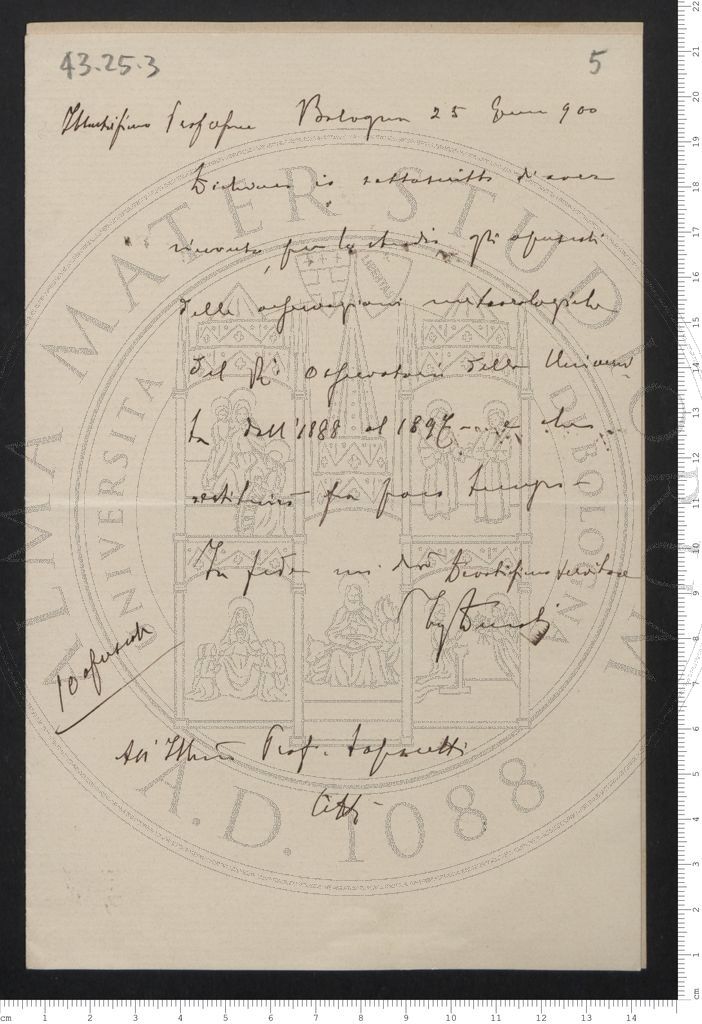 43.25.3
5
Illustrissimo Professore Bologna 25 900
Dichiaro io sottoscritto di aver
ricevuto, per lo studio gli opuscoli
delle osservazioni meteorologiche
del R. Osservatorio della Universi
tà dall'1888 al 1897 e che
restituirò fra poco tempo
In fede mi devotissimo servitore
10 opuscoli
All' Illmo Prof.
Città
ALMA MATER STUDIORUM
UNIVERSITÀ DI BOLOGNA
LIBERTAS
A.D. 1088